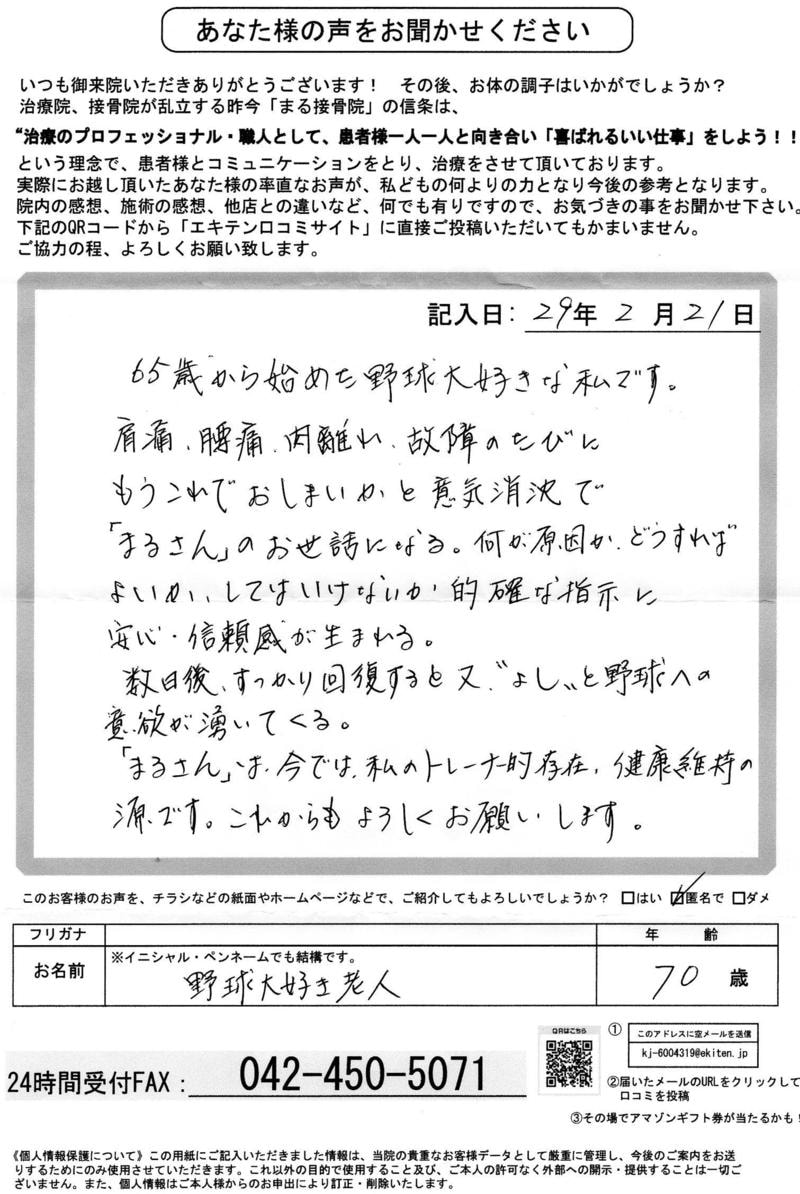 あなた様の声をお聞かせください
いつも御来院いただきありがとうございます！　その後、お体の調子はいかがでしょうか？
治療院、接骨院が乱立する昨今「まる接骨院」の信条は、
“治療のプロフェッショナル・職人として、患者様一人一人と向き合い「喜ばれるいい仕事」をしよう！！
という理念で、患者様とコミュニケーションをとり、治療をさせて頂いております。
実際にお越し頂いたあなた様の率直なお声が、私どもの何よりの力となり今後の参考となります。
院内の感想、施術の感想、他店との違いなど、何でも有りですので、お気づきの事をお聞かせ下さい。
下記のQRコードから「エキテン口コミサイト」に直接ご投稿いただいてもかまいません。
ご協力の程、よろしくお願い致します。
記入日：29年2月21日
65歳から始めた野球大好きな私です。
肩痛、腰痛、肉離れ、故障のたびに
もうこれでおしまいかと意気消沈で
「まるさん」のお世話になる。何が原因か、どうすれば
よいか、してはいけないか的確な指示に
安心・信頼感が生まれる。
数日後、すっかり回復すると又、“よし”と野球への
意欲が湧いてくる。
「まるさん」は、今では、私のトレーナー的存在、健康維持の
源です。これからもよろしくお願いします。
このお客様のお声を、チラシなどの紙面やホームページなどで、ご紹介してもよろしいでしょうか？ □はい ☑匿名で □ダメ
フリガナ
年　齢
お名前
※イニシャル・ペンネームでも結構です。
野球大好き老人
70歳
QRはこちら
①
このアドレスに空メールを送信
kj-6004319@ekiten.jp
24時間受付FAX：042-450-5071
②届いたメールのURLをクリックして
口コミを投稿
③その場でアマゾンギフト券が当たるかも！
《個人情報保護について》この用紙にご記入いただきました情報は、当院の貴重なお客様データとして厳重に管理し、今後のご案内をお送
りするためにのみ使用させていただきます。これ以外の目的で使用すること及び、ご本人の許可なく外部への開示・提供することは一切ご
ざいません。また、個人情報はご本人様からのお申出により訂正・削除いたします。